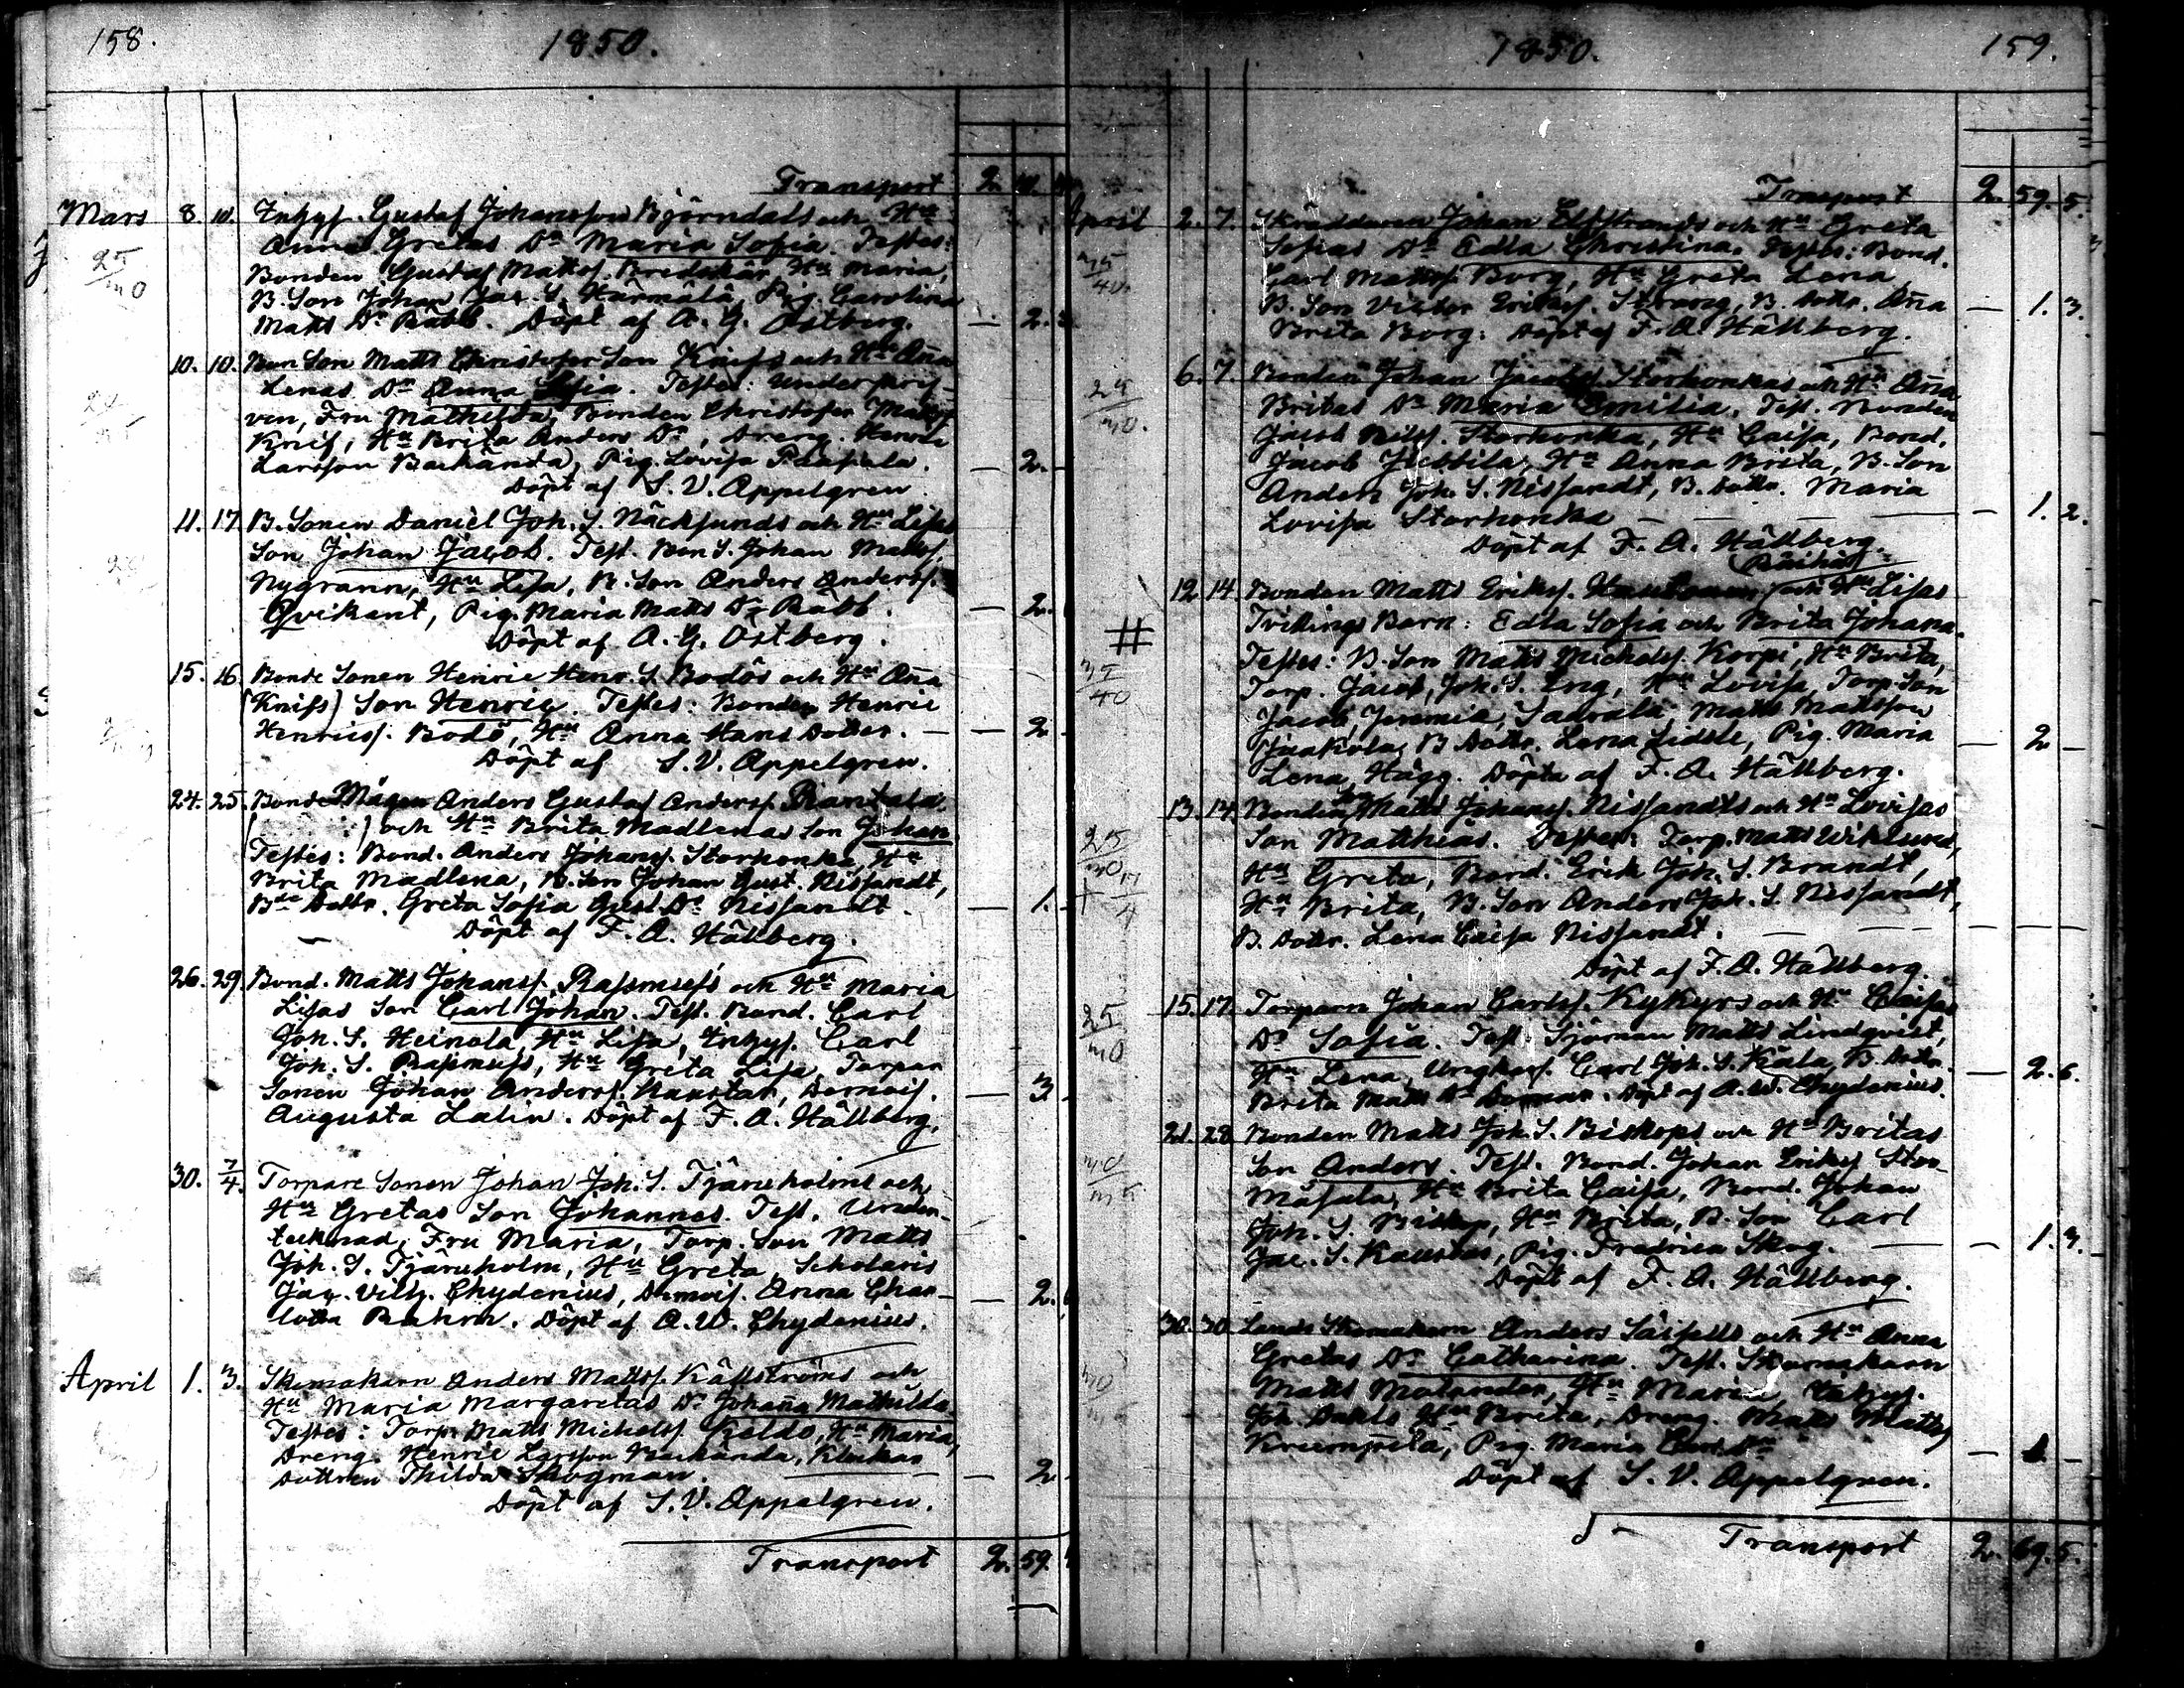 158.
1850.
Transport 2.
Mars 8. 10. Inhys. Gustaf Johansson Björndahls och Hu
Anna Gretas Dr Maria Sofia. Testes:
25/30
Bonden Gustaf Mattss. Bredskär, Hu Maria,
B. Son Johan Jac. S. Härmälä, Pig. Carolina
Matts Dr Rabb. Döpt af A. G. Östberg. — 2.
10. 10. Bon Son Matts Christofer Son Knifs och Hu Aña
Lenas Dr Anna Sofia. Testes: Underskrif-
ven, Fru Mathilda, Bonden Christofer Mattss.
Knif, Hu Brita Anders Dr, Dreng. Henric
Larsson Backända, Pig. Lovisa — 2. —
Döpt af S. V. Appelgren.
11. 17. B. Sonen Daniel Joh. S. Näcksunds och Hu Lisas
Son Johan Jacob. Test. Bon S. Johan Mattss.
Nygrann, Hu Lisa, B. Son Anders Anderss.
Qvikant, Pig. Maria Matts Dr Rabb. — 2.
Döpt af A. G. Östberg.
15. 16. Bonde Sonen Henric Henr. S. Bodös och Hu Aña
(Knifs) Son Henric. Testes: Bonden Henric
Henricss. Bodö, Hu Anna Hans Dotter. — — 2 —
Döpt af S. V. Appelgren.
24. 25. Bonde Mågen Anders Gustaf Anderss. Rantala
( ) och Hu Brita Madlenas Son Johan
Testes: Bond. Anders Johanss. Storhonka, Hu
Brita Madlena, B. Son Johan Gust. Nissandt,
Bde Dottr. Greta Sofia Gust. Dr Nissandt. — 1. —
Döpt af F. A. Hällberg.
26. 29. Bond. Matts Johanss. Rasmusess och Hu Maria
Lisas Son Carl Johan. Test. Bond. Carl
Joh. S. Heinola, Hu Lisa, Inhys. Carl
Joh. S. Rasmuss, Hu Greta Lisa, Torpar
Sonen Johan Anderss. Kaustar, Demois. — 3 —
Augusta Lalin. Döpt af F. A. Hällberg.
30. 7/4. Torpare Sonen Johan Joh. S. Tjäruholms och
Hus Gretas Son Johannes. Test. Under-
tecknad, Fru Maria, Torp. Son Matts
Joh. S. Tjäruholm, Hu Greta, Scholaris
Jac. Vilh. Chydenius, Demois. Anna Char- — 2.
lotta Rahm. Döpt af A. W. Chydenius.
April 1. 3. Skomakarn Anders Mattss. Källströms och
Hu Maria Margaretas Dr Johaña Mathilda
Testes: Torp. Matts Michelss. Kaldo, Hu Maria,
Dreng. Henric Larsson Backända, Klockar
Dottren Thilda Skogman. — — 2 —
Döpt af S. V. Appelgren.
Transport 2. 59.
1850. 159.
Transport 2. 59. 5.
April 2. 7. Skräddaren Johan Elfstrands och Hu Greta
Sofias Dr Edla Christina. Testes: Bond.
Carl Mattss. Borg, Hu Greta Lena
B. Son Victor Erikss. Strang, B. Dottr. Aña — 1. 3.
Brita Borg. Döpt af F. A. Hällberg.
6. 7. Bonden Johan Jacobss. Storhonkas och Hu Aña
Britas Dr Maria Emilia. Test. Bonden
Jacob Nilss. Storhonka, Hu Caisa, Bond.
Jacob Hu Anna Brita, B. Son
Anders Joh. S. Nissandt, B. Dottr. Maria
Lovisa Storhonka — — — 1. 2.
Döpt af F. A. Hällberg.
12 14. Bonden Matts Erikss. och Hu Lisas
Tvillings Barn: Edla Sofia och Brita Johana.
#
Testes: B. Son Matts Michelss. Korpi, Hu Brita,
35/40
Torp. Jacob Joh. S. Eng, Hu Lovisa, Torp. Son
Jacob Jeremia Matts Mattsson
B. Dottr. Lena Lidste, Pig. Maria — 2 —
Lena Hägg. Döpta af F. A. Hällberg.
13. 14. Bonden Matts Johanss. Nissandts och Hu Lovisas
Son Matthias. Testes: Torp. Matts Wiklund,
Hu Greta, Bond. Erik Joh. S. Brandt,
Hu Brita, B. Son Anders Joh. S. Nissandt,
B. Dottr. Lena Caisa Nissandt. — — —
Döpt af F. A. Hällberg.
15. 17. Torparn Johan Carlss. Kykyrs och Hu Caisas
Dr Sofia. Test. Sjöman Matts Lindqvist,
Hu Lena, Ungkarl. Carl Joh. S. Kala, B. Dottr. — 2. 6.
Brita Matts Dr Döpt af A. W. Chydenius.
21. 28. Bonden Matts Joh. S. Biskops och Hu Britas
Son Anders. Test. Bond. Johan Erikss. Stor-
måsala, Hu Brita Caisa, Bond. Johan
Joh. S. Biskop, Hu Brita, B. Son Carl
Jac. S. Kaustar, Pig. Fredrica Skog. — — 1. 3.
Döpt af F. A. Hällberg.
30. 30. Lands Skomakarn Anders och Hu Anna
Gretas Dr Catharina. Test. Skomakarn
Matts Molander, Hu Maria, Inhys.
Joh. Hu Brita, Dreng. Matts Mattss.
Pig. Maria
Döpt af S. V. Appelgren.
Transport 2. 69. 5.